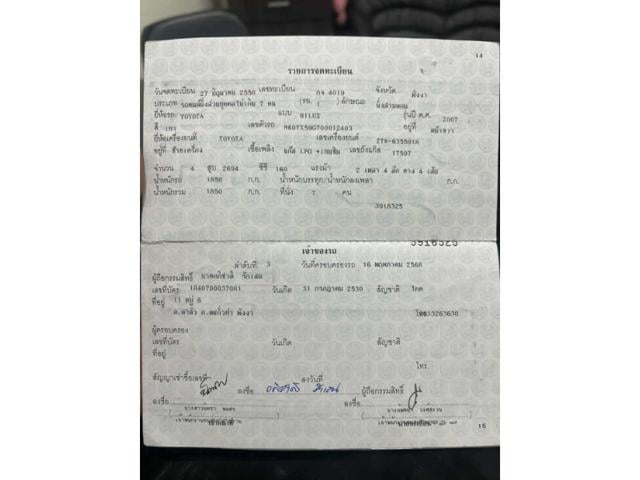 14
รายการจดทะเบียน
วันจดทะเบียน 27 มิถุนายน 2550 เลขทะเบียน กง 4019 จังหวัด พังงา
ประเภท รถยนต์นั่งส่วนบุคคลไม่เกิน 7 คน (รย. 1 ) ลักษณะ
ยี่ห้อรถ TOYOTA แบบ HILUX รุ่นปี ค.ศ. 2007
สี เทา เลขตัวรถ อยู่ที่ หน้าขวา
ยี่ห้อเครื่องยนต์ TOYOTA เลขเครื่องยนต์
อยู่ที่ ซ้ายเครื่อง เชื้อเพลิง เลขถังแก๊ส 17507
จำนวน 4 สูบ 2694 ซีซี 160 แรงม้า 2 เพลา 4 ล้อ ยาง 4 เส้น
น้ำหนักรถ 1850 ก.ก. น้ำหนักบรรทุก/น้ำหนักลงเพลา ก.ก.
น้ำหนักรวม 1850 ก.ก. ที่นั่ง 7 คน
3918325
เจ้าของรถ
ลำดับที่ 3 วันที่ครอบครองรถ 16 พฤษภาคม
ผู้ถือกรรมสิทธิ์
เลขที่บัตร วันเกิด 31 กรกฎาคม 2530 สัญชาติ ไทย
ที่อยู่ 11 หมู่ 6
พังงา โทร.
ผู้ครอบครอง
เลขที่บัตร วันเกิด สัญชาติ
ที่อยู่
โทร.
สัญญาเช่าซื้อเลขที่ ลงวันที่
ลงชื่อ ผู้ถือกรรมสิทธิ์
ลงชื่อ ลงชื่อ
15